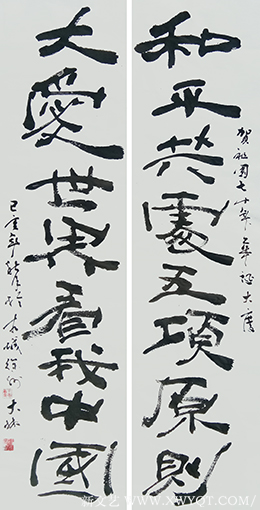 和平共處五項原則
賀祖國七十年華誕大慶
大愛世界看我中國
己亥
新文艺 WWW.XWYQT.COM